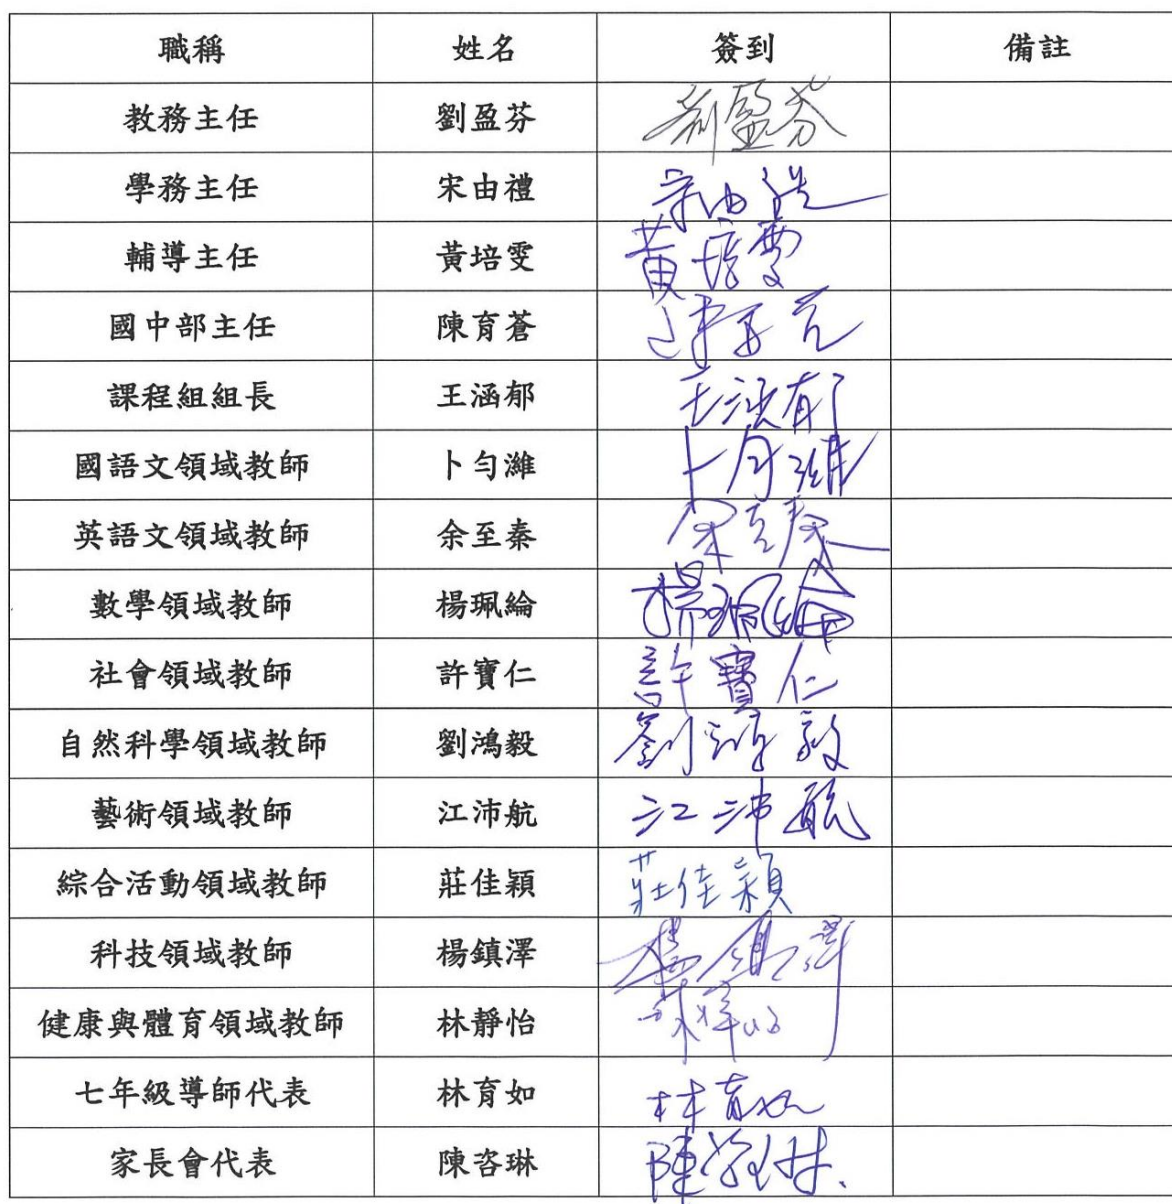 職稱 姓名 簽到 備註
教務主任 劉盈芬 劉盈芬
學務主任 宋由禮 宋由礼
輔導主任 黃培雯 黃培雯
國中部主任 陳育蒼
課程組組長 王涵郁 王涵郁
國語文領域教師 卜勻濰 卜勻濰
英語文領域教師 余至秦 余至秦
數學領域教師 楊珮綸 楊珮綸
社會領域教師 許寶仁 許寶仁
自然科學領域教師 劉鴻毅 劉鴻毅
藝術領域教師 江沛航 江沛航
綜合活動領域教師 莊佳穎 莊佳穎
科技領域教師 楊鎮澤 楊鎮澤
健康與體育領域教師 林靜怡
七年級導師代表 林育如 林育如
家長會代表 陳咨琳 陳咨琳